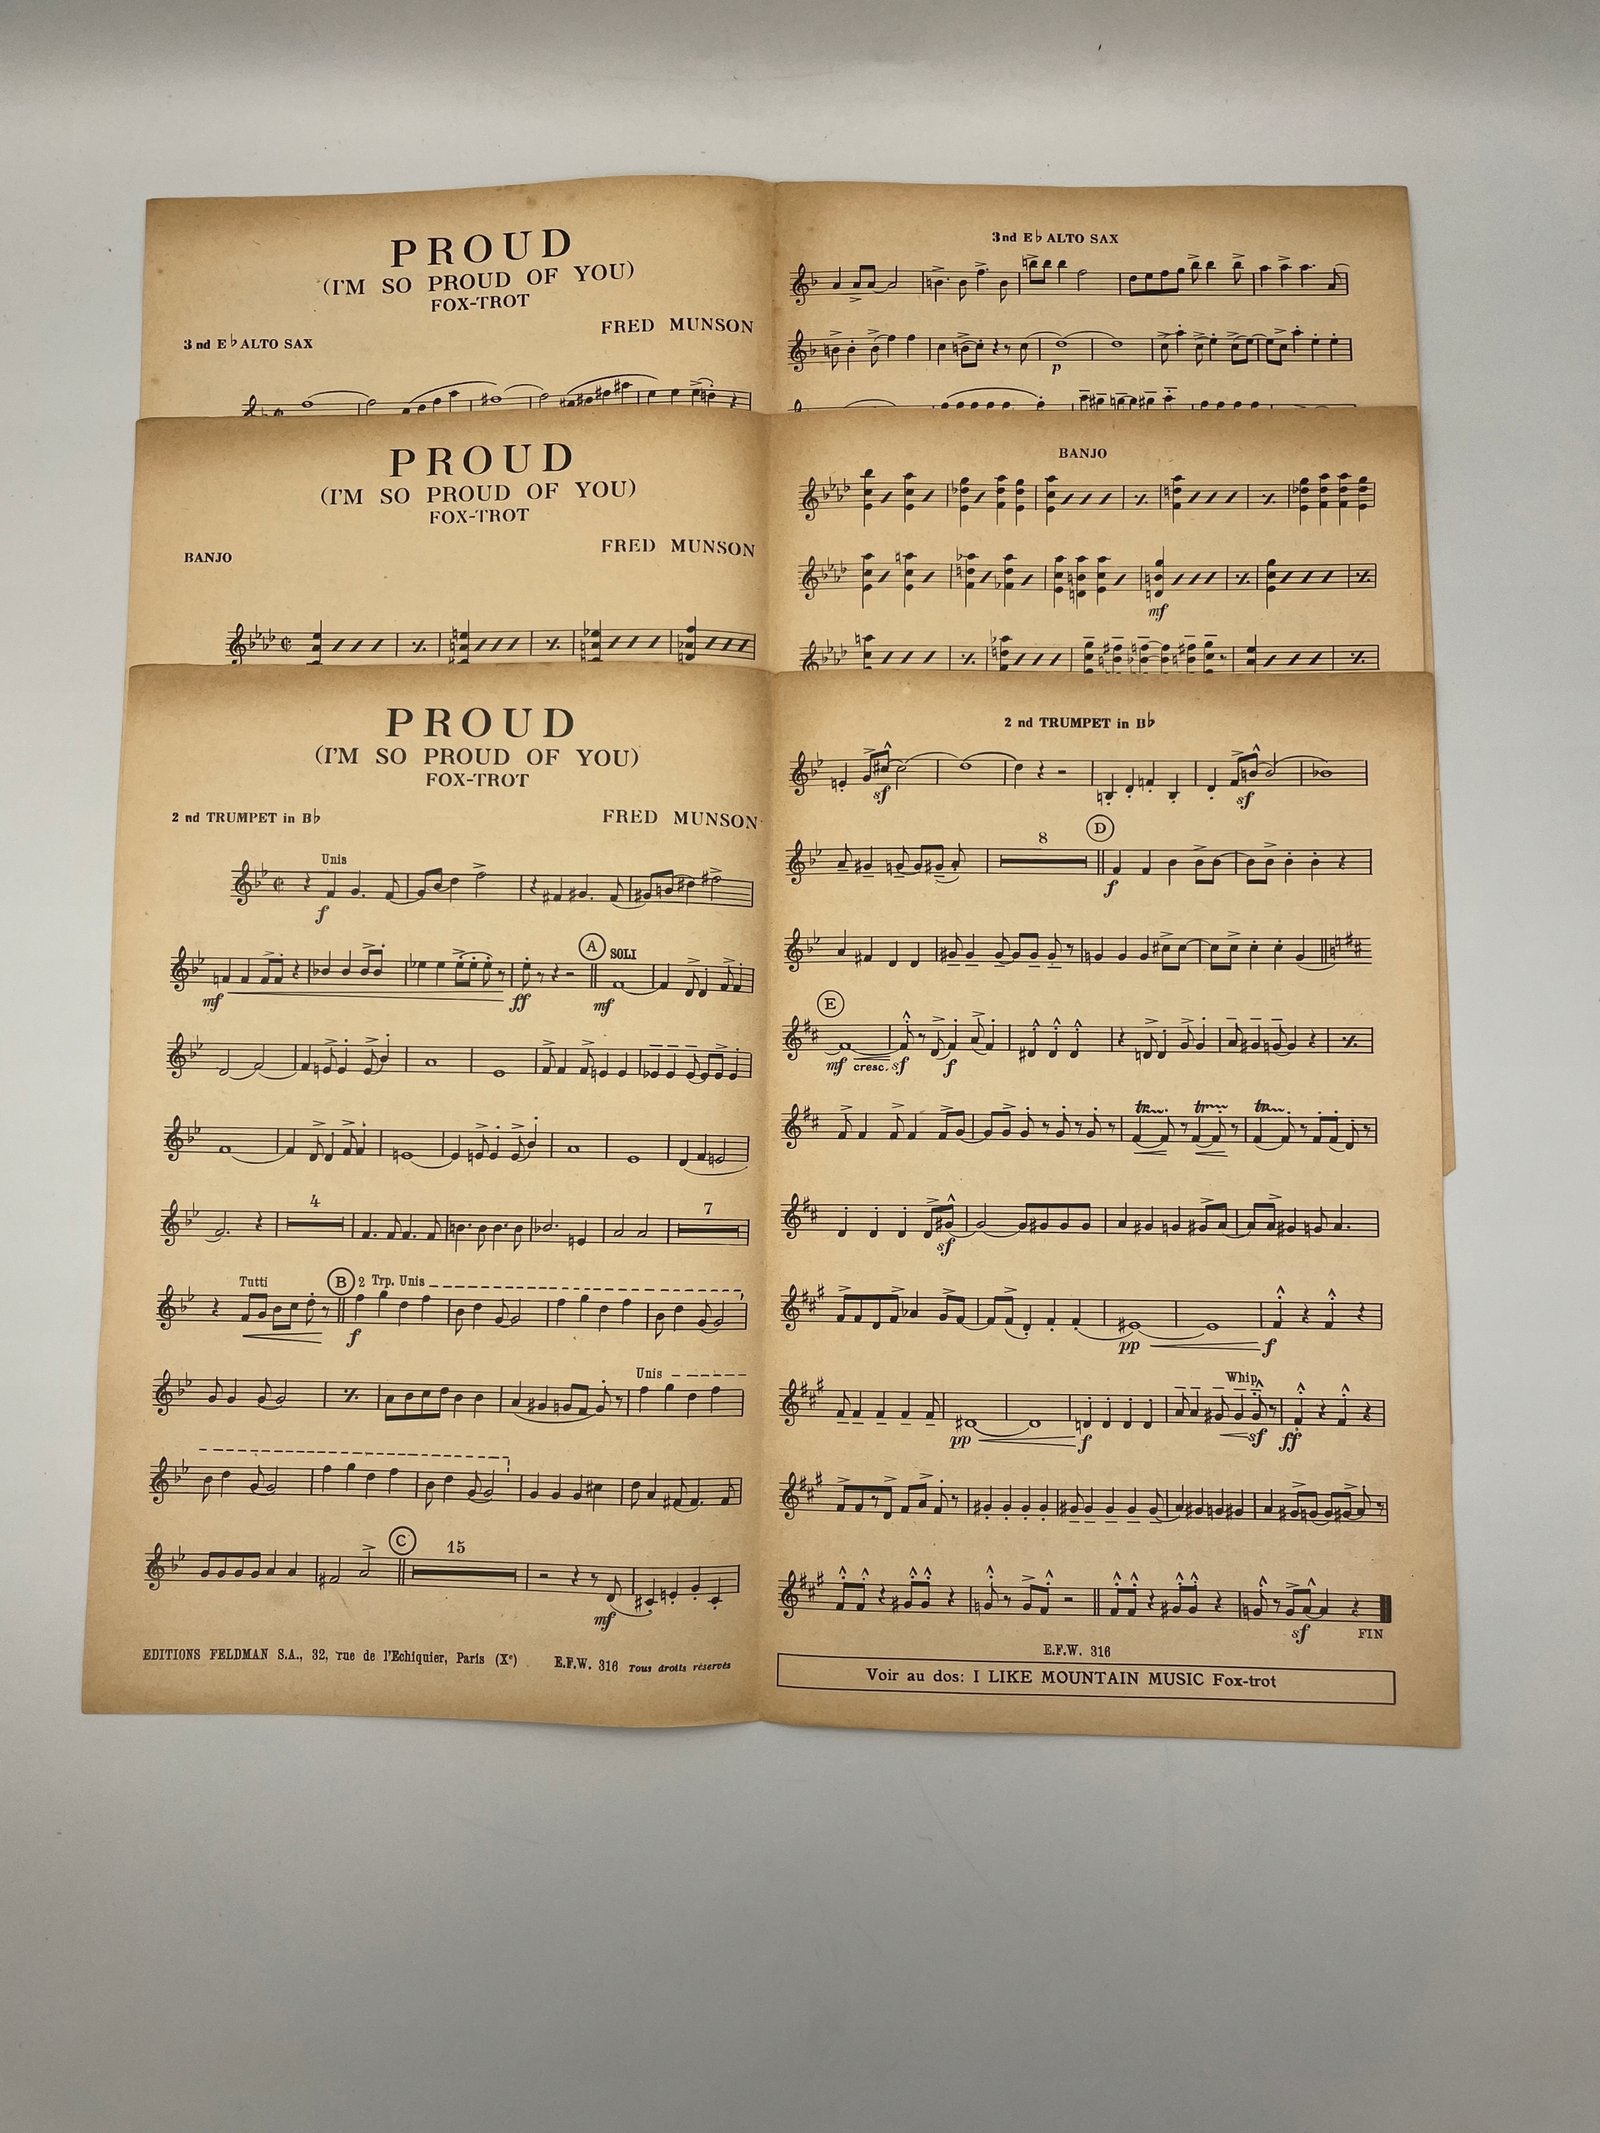 PROUD
(I'M SO PROUD OF YOU)
FOX-TROT
FRED MUNSON
3nd E♭ ALTO SAX
3nd E♭ ALTO SAX
p
PROUD
(I'M SO PROUD OF YOU)
FOX-TROT
FRED MUNSON
BANJO
BANJO
mf
PROUD
(I'M SO PROUD OF YOU)
FOX-TROT
2 nd TRUMPET in B♭
FRED MUNSON
Unis
f
A SOLI
mf ff mf
4 7
Tutti B 2 Trp. Unis
f
Unis
C
15
mf
EDITIONS FELDMAN S.A., 32, rue de l'Echiquier, Paris (Xe) E.F.W. 316 Tous droits réservés
2 nd TRUMPET in B♭
sf sf
8 D
f
E
mf cresc. sf f
tr tr tr
sf
pp f
Whip
pp f sf ff
sf FIN
E.F.W. 316
Voir au dos: I LIKE MOUNTAIN MUSIC Fox-trot